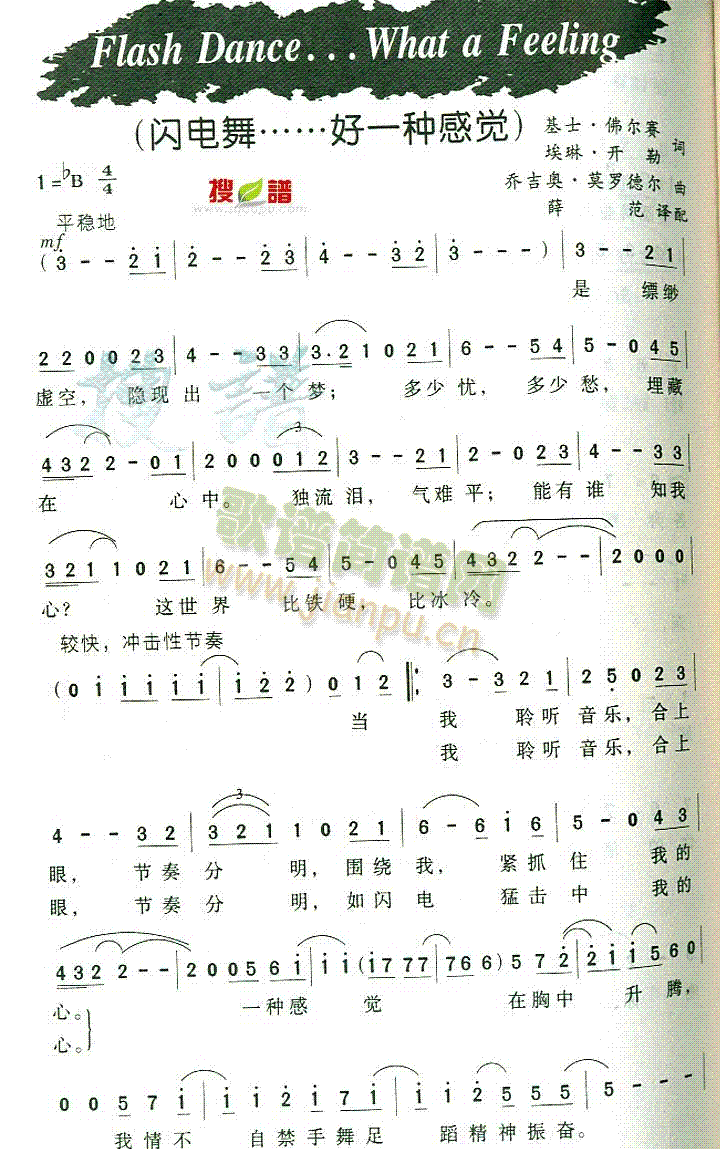 Flash Dance...What a Feeling
(闪电舞……好一种感觉)
基士·佛尔赛
埃琳·开 勒 词
乔吉奥·莫罗德尔 曲
薛 范 译配
1=♭B 4/4
搜 譜
平稳地
mf
(3 - - 2 1 | 2 - - 2 3 | 4 - - 3 2 | 3 - - - ) | 3 - - 2 1 |
是 缥缈
2 2 0 0 2 3 | 4 - - 3 3 | 3. 2 1 0 2 1 | 6 - - 5 4 | 5 - 0 4 5 |
虚空, 隐现 出 一个 梦; 多少 忧, 多少 愁, 埋藏
4 3 2 2 - 0 1 | 2 0 0 0 1 2 | 3 - - 2 1 | 2 - 0 2 3 | 4 - - 3 3 |
在 心 中。 独流 泪, 气难 平; 能有 谁 知我
歌谱简谱网
www.jianpu.cn
3 2 1 1 0 2 1 | 6 - - 5 4 | 5 - 0 4 5 | 4 3 2 2 - - | 2 0 0 0
心? 这世 界 比铁 硬, 比冰 冷。
较快, 冲击性节奏
(0 1 1 1 1 1 | 1 1 2 2 ) 0 1 2 ‖: 3 - 3 2 1 | 2 5 0 2 3 |
当 我 聆听 音乐, 合上
我 聆听 音乐, 合上
4 - - 3 2 | 3 2 1 1 0 2 1 | 6 - 6 1 6 | 5 - 0 4 3 |
眼, 节奏 分 明, 围绕 我, 紧抓 住 我的
眼, 节奏 分 明, 如闪 电 猛击 中 我的
4 3 2 2 - - | 2 0 0 5 6 1 | 1 1 (1 7 7 7 | 7 6 6) 5 7 2 | 2 1 1 5 6 0 |
心。 一种感 觉 在胸中 升 腾,
心。
0 0 5 7 1 | 1 1 2 1 7 1 | 1 1 2 5 5 5 | 5 - - - |
我情不 自禁手舞足 蹈精神振奋。